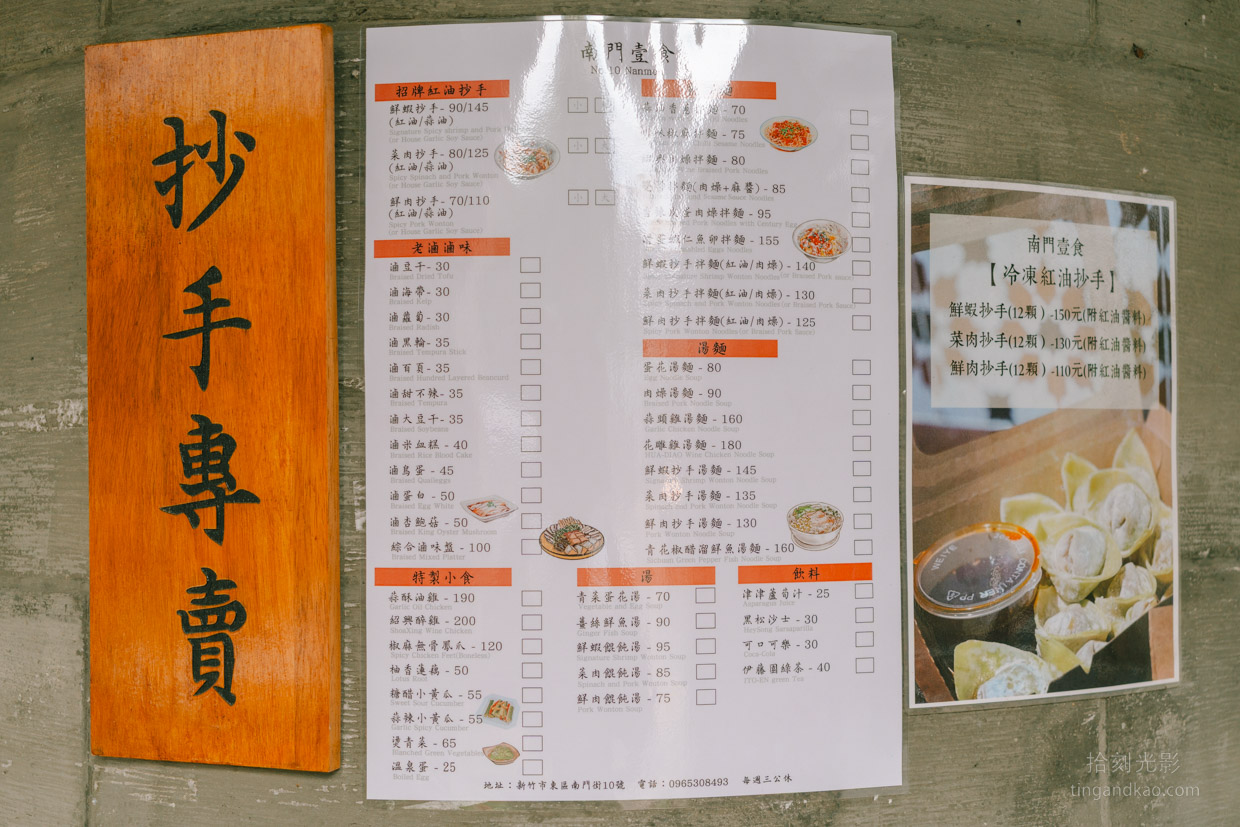 抄手專賣
南門壹食
No.10 Nanmen
招牌紅油抄手
鮮蝦抄手- 90/145
(紅油/蒜油)
Signature Spicy Shrimp and Pork
(or House Garlic Soy Sauce)
小
菜肉抄手- 80/125
(紅油/蒜油)
Spicy Spinach and Pork Wonton
(or House Garlic Soy Sauce)
小
鮮肉抄手- 70/110
(紅油/蒜油)
Spicy Pork Wonton
(or House Garlic Soy Sauce)
小 大
老滷滷味
滷豆干- 30
Braised Dried Tofu
滷海帶- 30
Braised Kelp
滷蘿蔔- 30
Braised Radish
滷黑輪- 35
Braised Tempura Stick
滷百頁- 35
Braised Hundred Layered Beancurd
滷甜不辣- 35
Braised Tempura
滷大豆干- 35
Braised Soybeans
滷米血糕 - 40
Braised Rice Blood Cake
滷鳥蛋 - 45
Braised Quaileggs
滷蛋白 - 50
Braised Egg White
滷杏鮑菇 - 50
Braised King Oyster Mushroom
綜合滷味盤 - 100
Braised Mixed Platter
特製小食
蒜酥油雞 - 190
Garlic Oil Chicken
紹興醉雞 - 200
ShouXing Wine Chicken
椒麻無骨鳳爪 - 120
Spicy Chicken Feet(Boneless)
柚香蓮藕 - 50
Lotus Root
糖醋小黃瓜 - 55
Sweet Sour Cucumber
蒜辣小黃瓜 - 55
Garlic Spicy Cucumber
燙青菜 - 65
Blanched Green Vegetables
溫泉蛋 - 25
Boiled Egg
麵
- 70
拌麵 - 75
肉燥拌麵 - 80
(肉燥+麻醬) - 85
肉燥拌麵 - 95
蝦仁魚卵拌麵 - 155
鮮蝦抄手拌麵(紅油/肉燥) - 140
菜肉抄手拌麵(紅油/肉燥) - 130
鮮肉抄手拌麵(紅油/肉燥) - 125
湯麵
蛋花湯麵 - 80
Egg Noodle Soup
肉燥湯麵 - 90
Braised Pork Noodle Soup
蒜頭雞湯麵 - 160
Garlic Chicken Noodle Soup
花雕雞湯麵 - 180
HUA-DIAO Wine Chicken Noodle Soup
鮮蝦抄手湯麵 - 145
Signature Shrimp Wonton Noodle Soup
菜肉抄手湯麵 - 135
Spinach and Pork Wonton Noodle Soup
鮮肉抄手湯麵 - 130
Pork Wonton Noodle Soup
青花椒醋溜鮮魚湯麵 - 160
Sechuan Green Pepper Fish Noodle Soup
湯
青菜蛋花湯 - 70
Vegetable and Egg Soup
薑絲鮮魚湯 - 90
Ginger Fish Soup
鮮蝦餛飩湯 - 95
Signature Shrimp Wonton Soup
菜肉餛飩湯 - 85
Spinach and Pork Wonton Soup
鮮肉餛飩湯 - 75
Pork Wonton Soup
飲料
津津蘆筍汁 - 25
Asparagus Juice
黑松沙士 - 30
HeySong Sarsaparilla
可口可樂 - 30
Coca-Cola
伊藤園綠茶 - 40
ITO-EN green Tea
地址：新竹市東區南門街10號 電話：0965308493 每週三公休
南門壹食
【冷凍紅油抄手】
鮮蝦抄手(12顆) -150元(附紅油醬料)
菜肉抄手(12顆) -130元(附紅油醬料)
鮮肉抄手(12顆) -110元(附紅油醬料)
WEIYE
CONTAINER PP
拾刻光影
tingandkao.com